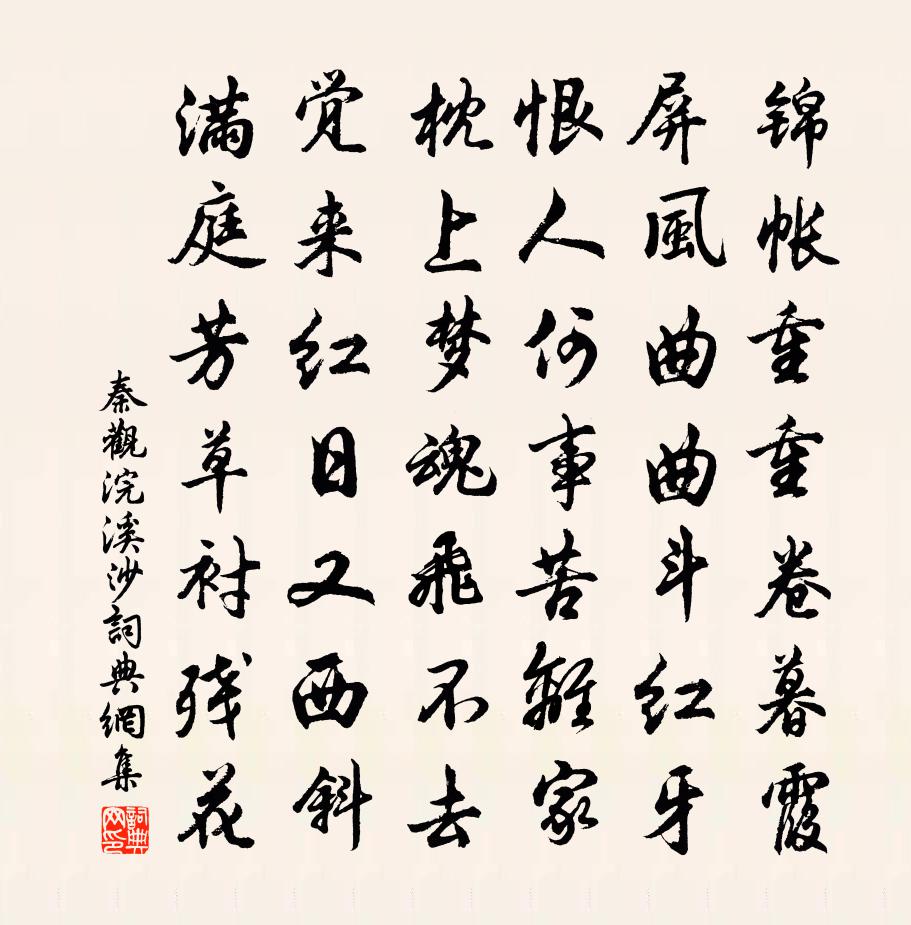 锦帐重重卷暮霞
屏風曲曲斗红牙
恨人何事苦離家
枕上梦魂飛不去
觉来红日又西斜
满庭芳草衬残花
秦觀浣溪沙詞典網集
詞典網印